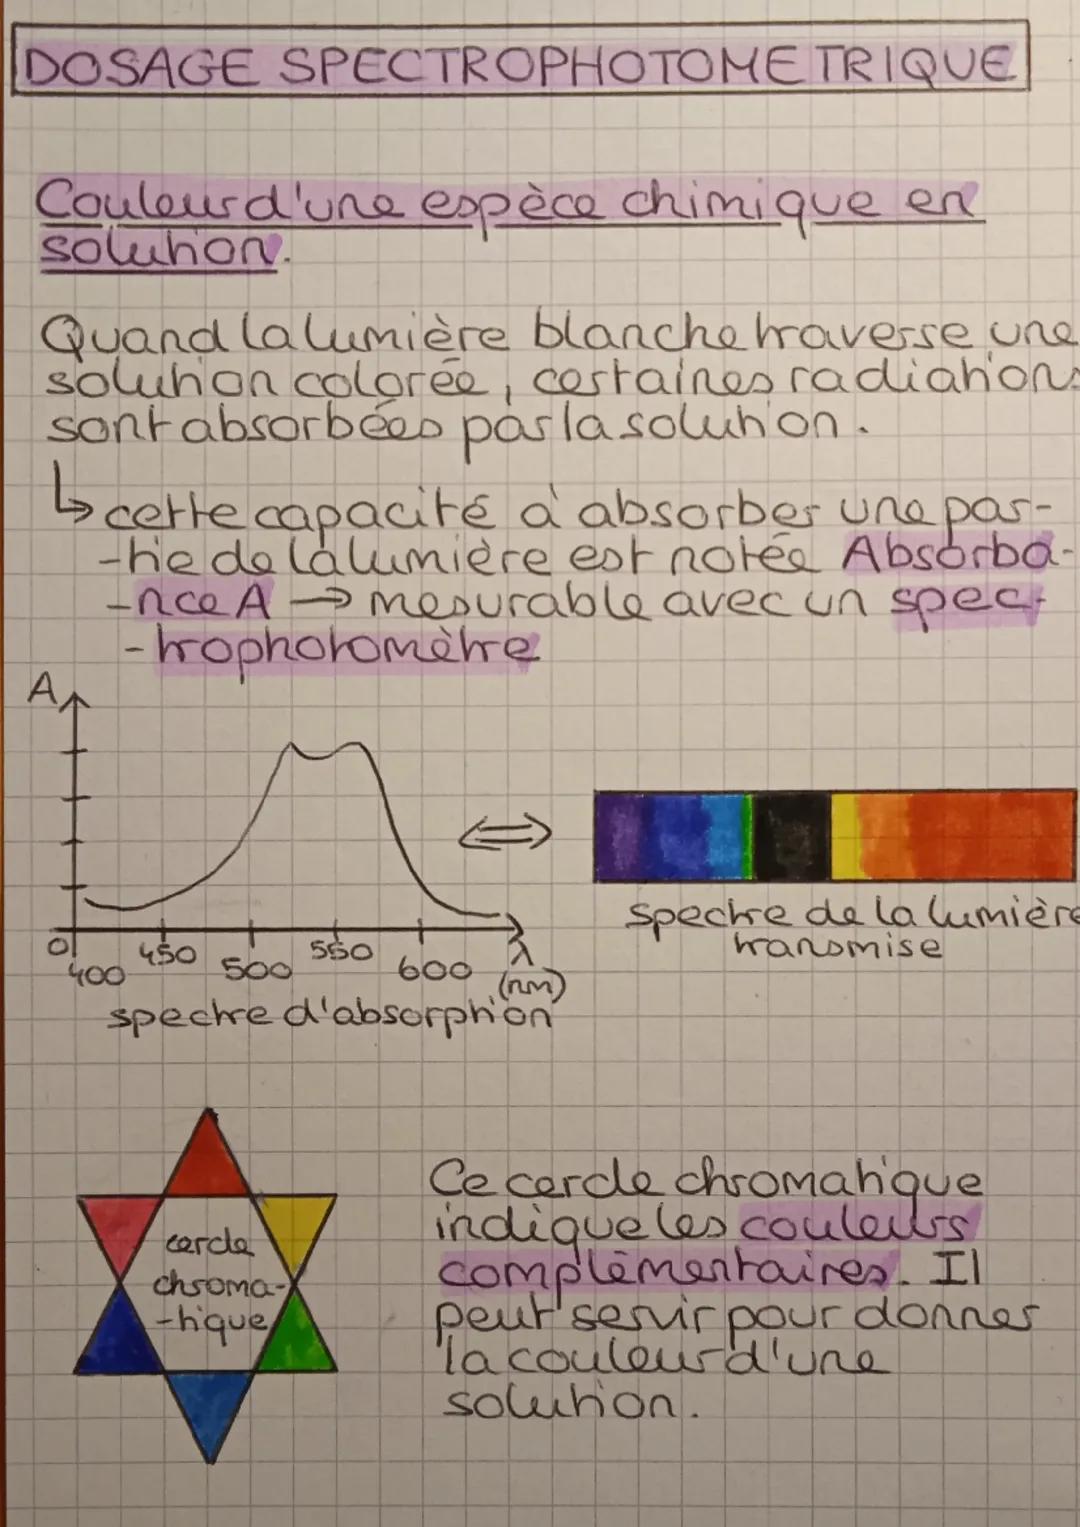 DOSAGE SPECTROPHOTOMETRIQUE
Couleur d'une espèce chimique en
solution.
Quand la lumière blanche traverse une
solution colorée, certaines radiations
sont absorbées par la solution.
↳ cette capacité à absorber une par-
-tie de la lumière est notée Absorba-
-nce A → mesurable avec un spec-
-trophotomètre
A
0
400
450
500
550
600
λ
(nm)
spectre d'absorption
⇔
spectre de la lumière
transmise
cercle
chroma-
-tique
Ce cercle chromatique
indique les couleurs
complémentaires. Il
peut servir pour donner
la couleur d'une
solution.